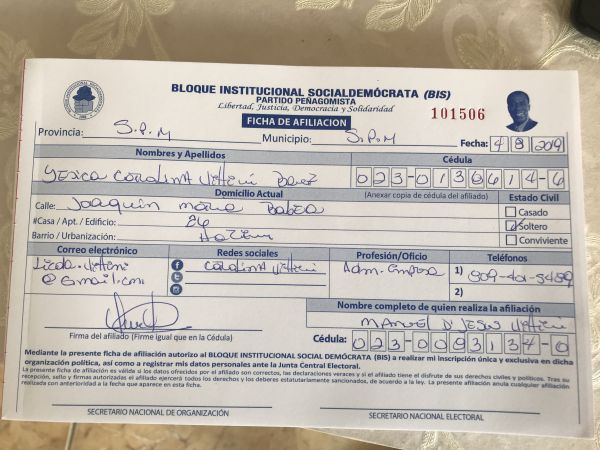 BLOQUE INSTITUCIONAL SOCIALDEMÓCRATA (BIS)
PARTIDO PEÑAGOMISTA
Libertad, Justicia, Democracia y Solidaridad
FICHA DE AFILIACION
101506
Provincia: S.P.M Municipio: S.P.M Fecha: 4 8 2019
Nombres y Apellidos Cédula
Yesica Carolina 023-0136614-6
Domicilio Actual (Anexar copia de cédula del afiliado) Estado Civil
Calle: Joaquin Maria Casado
#Casa / Apt. / Edificio: 26 Soltero
Barrio / Urbanización: Conviviente
Correo electrónico Redes sociales Profesión/Oficio Teléfonos
Carolina Adm. Empresa 1)
@Gmail.com 2)
Nombre completo de quien realiza la afiliación
Manuel D Jesus
Firma del afiliado (Firme igual que en la Cédula) Cédula: 023-0093134-0
Mediante la presente ficha de afiliación autorizo al BLOQUE INSTITUCIONAL SOCIAL DEMÓCRATA (BIS) a realizar mi inscripción única y exclusiva en dicha
organización política, así como a registrar mis datos personales ante la Junta Central Electoral.
La presente ficha de afiliación es válida si los datos ofrecidos por el afiliado son correctos, las declaraciones veraces y si el afiliado tiene el disfrute de sus derechos civiles y políticos. Tras su
recepción, sello y firmas autorizadas el afiliado ejercerá todos los derechos y los deberes estatutariamente sancionados, de acuerdo a la ley. La presente afiliación anula cualquier afiliación
realizada con anterioridad a la fecha que aparece en esta ficha.
SECRETARIO NACIONAL DE ORGANIZACIÓN SECRETARIO NACIONAL ELECTORAL